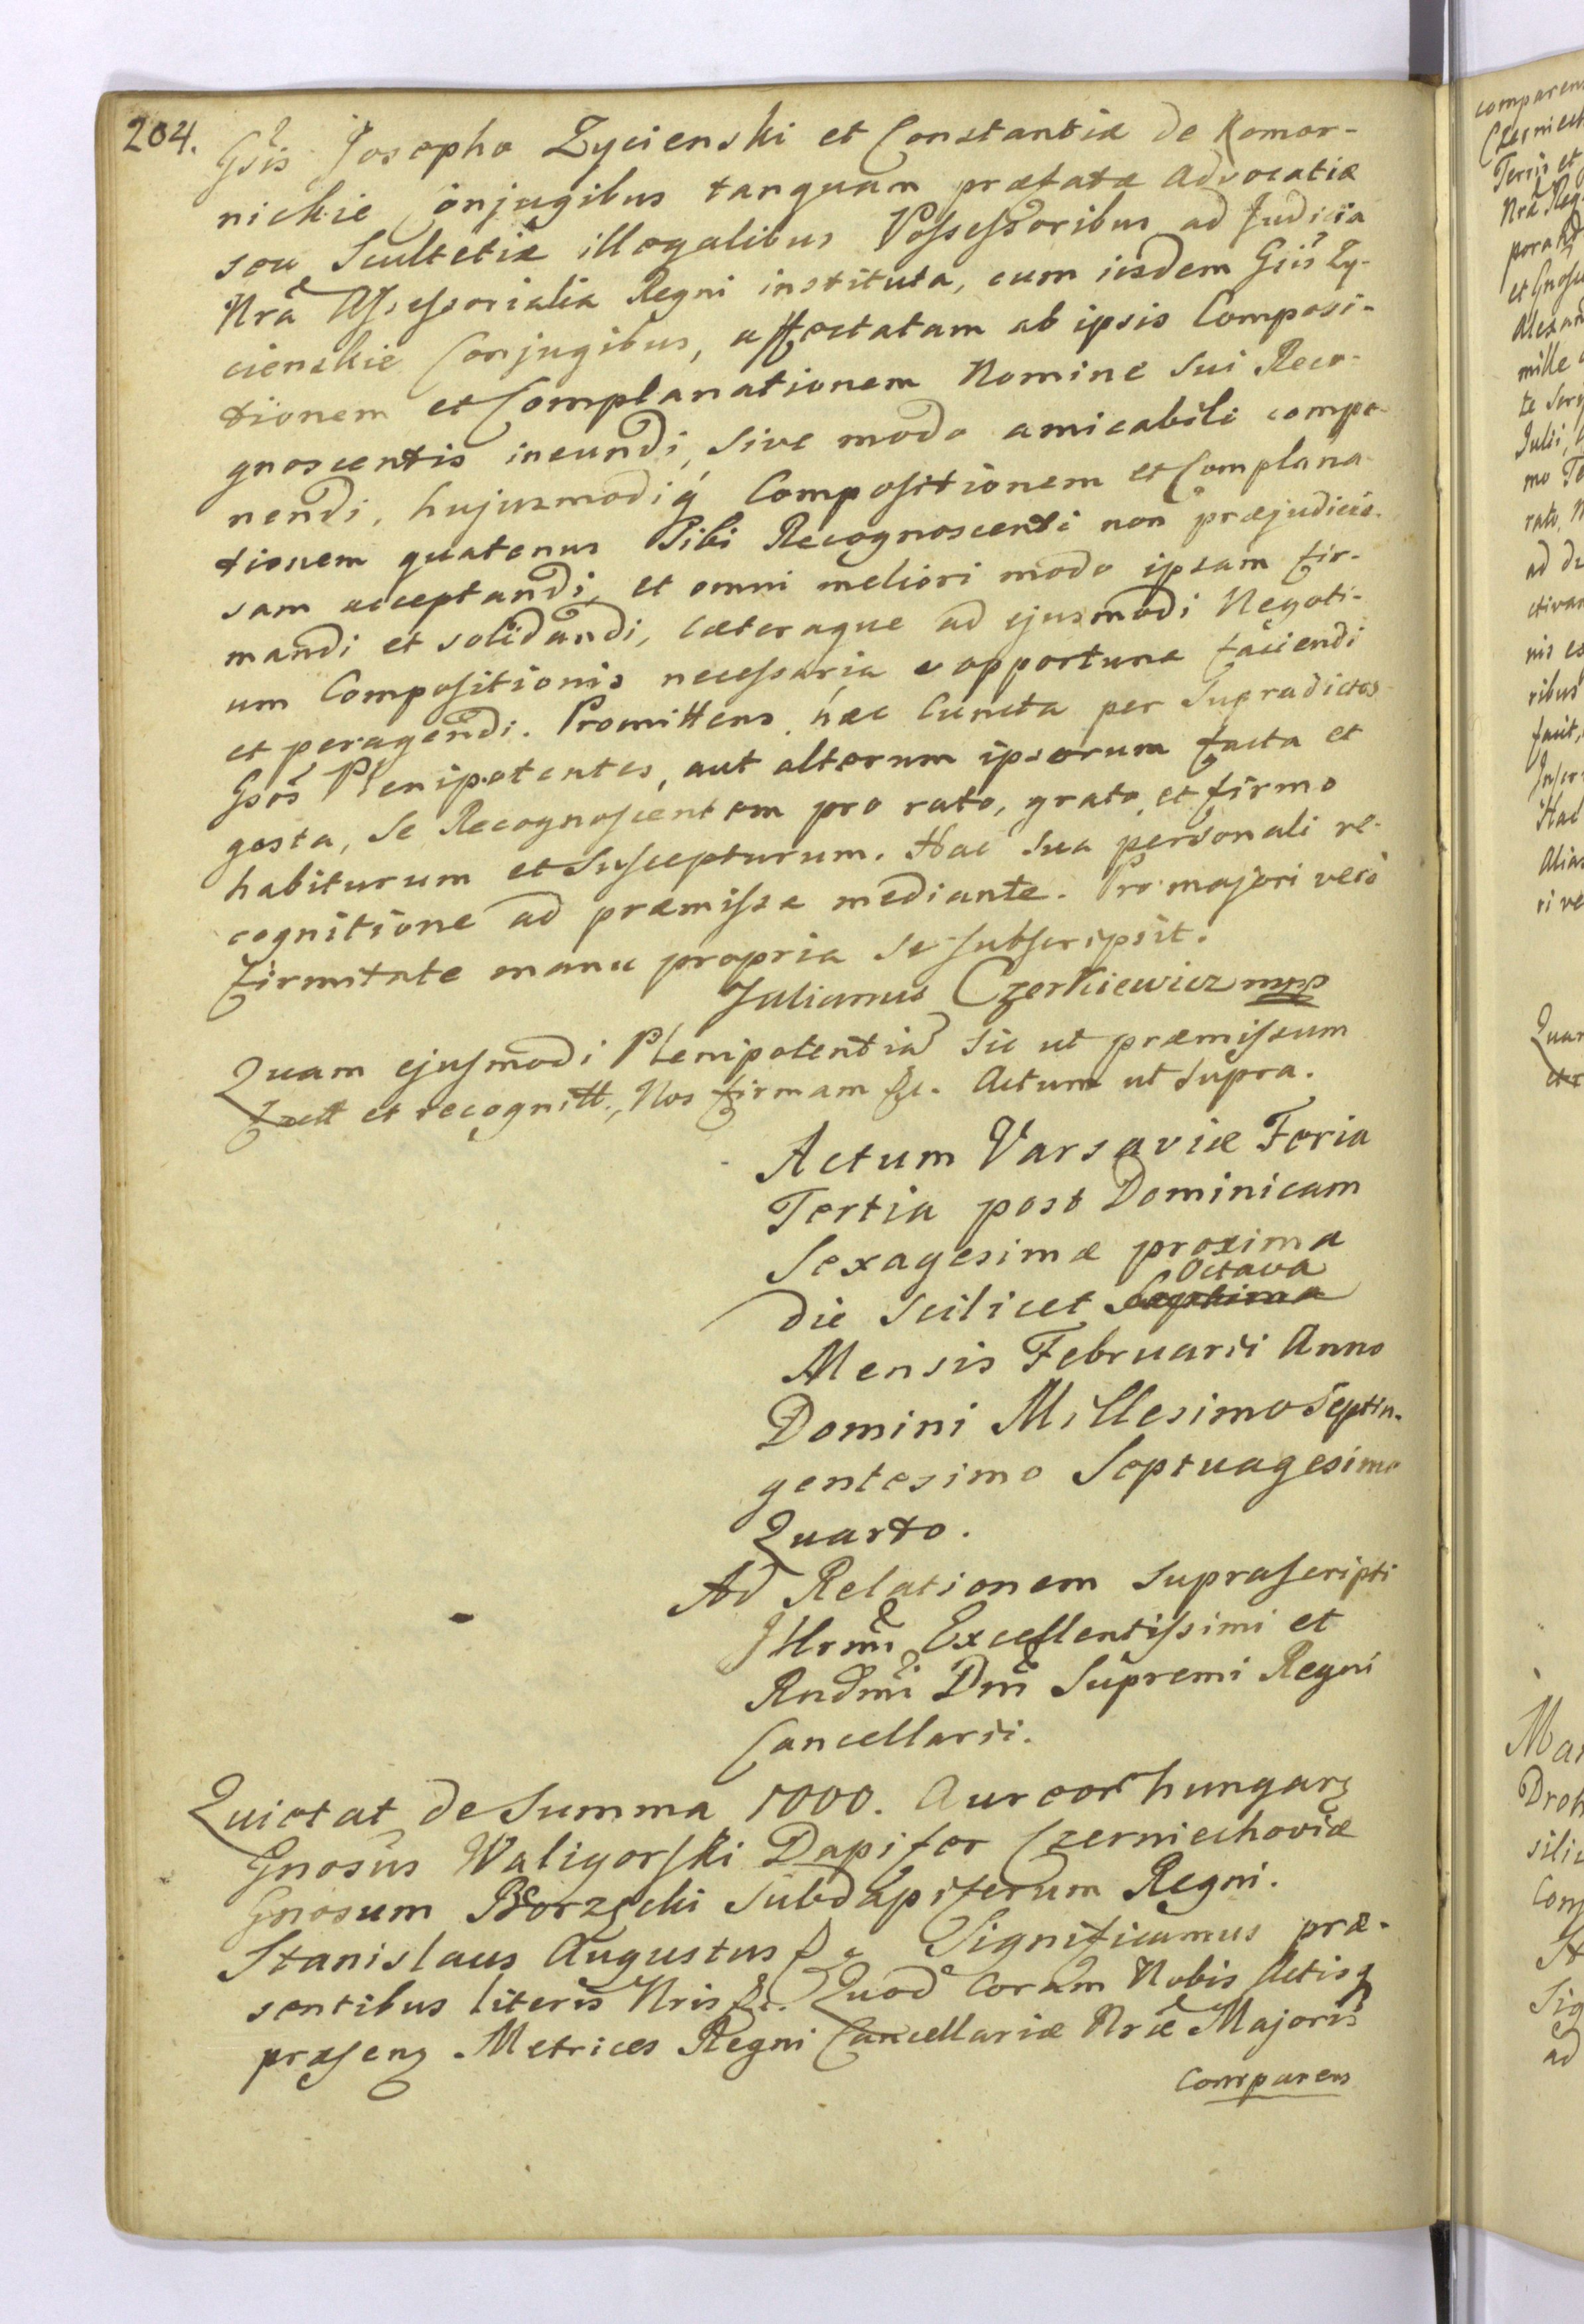 204.
Gsis Josepho Zycienski et Constantiæ de Komor-
nickie Conjugibus tanquam præfatæ Advocatiæ
seu Scultetiæ illegalibus Possessoribus ad Judicia
Nrã Assessorialia Regni instituta, cum iisdem Gsis Zy-
cienskie Conjugibus, affectatam ab ipsis Composi-
tionem et Complanationem Nomine Sui Reco-
gnoscentis ineundi, Sive modo amicabili compo-
nendi, hujusmodiq́ Compositionem et Complana-
tionem quatenus Sibi Recognoscenti non præjudicio-
sam acceptandi, et omni meliori modo ipsam fir-
mandi et solidandi, cæteraque ad ejusmodi Negoti-
um Compositionis necessaria e opportuna faciendi
et peragendi. Promittens, hæc Cuncta per Supradictos
Gsos Plenipotentes, aut alterum ipsorum facta et
gesta, Se Recognoscentem pro rato, grato et firmo
habiturum et Suscepturum. Hac Sua personali re-
cognitione ad præmissa mediante. Pro majori vero
firmitate manu propria Se Subscripsit.
Julianus Czerkiewicz mpp
Quam ejusmodi Plenipotentiã Sic ut præmissum
et recognitt., Nos firmam &c. Actum ut Supra.
Actum Varsaviæ Feria
Tertia post Dominicam
Sexagesimæ proxima
Octava
die Scilicet Septima
Mensis Februarii Anno
Domini Millesimo Septin-
gentesimo Septuagesimo
Quarto.
Ad Relationem Suprascripti
Illrmi Excellentissimi et
Rndmi Dni Supremi Regni
Cancellarii.
Quietat de Summa 1000. Aureor hungar
Gnosus Waligorski Dapifer Czerniechoviæ
Gnosum Borzęcki Subdapiferum Regni.
Stanislaus Augustus &c Significamus præ-
sentibus literis Nris &c. Quod Coram Nobis Actisq
præsen Metrices Regni Cancellariæ Nræ Majoris
Comparens